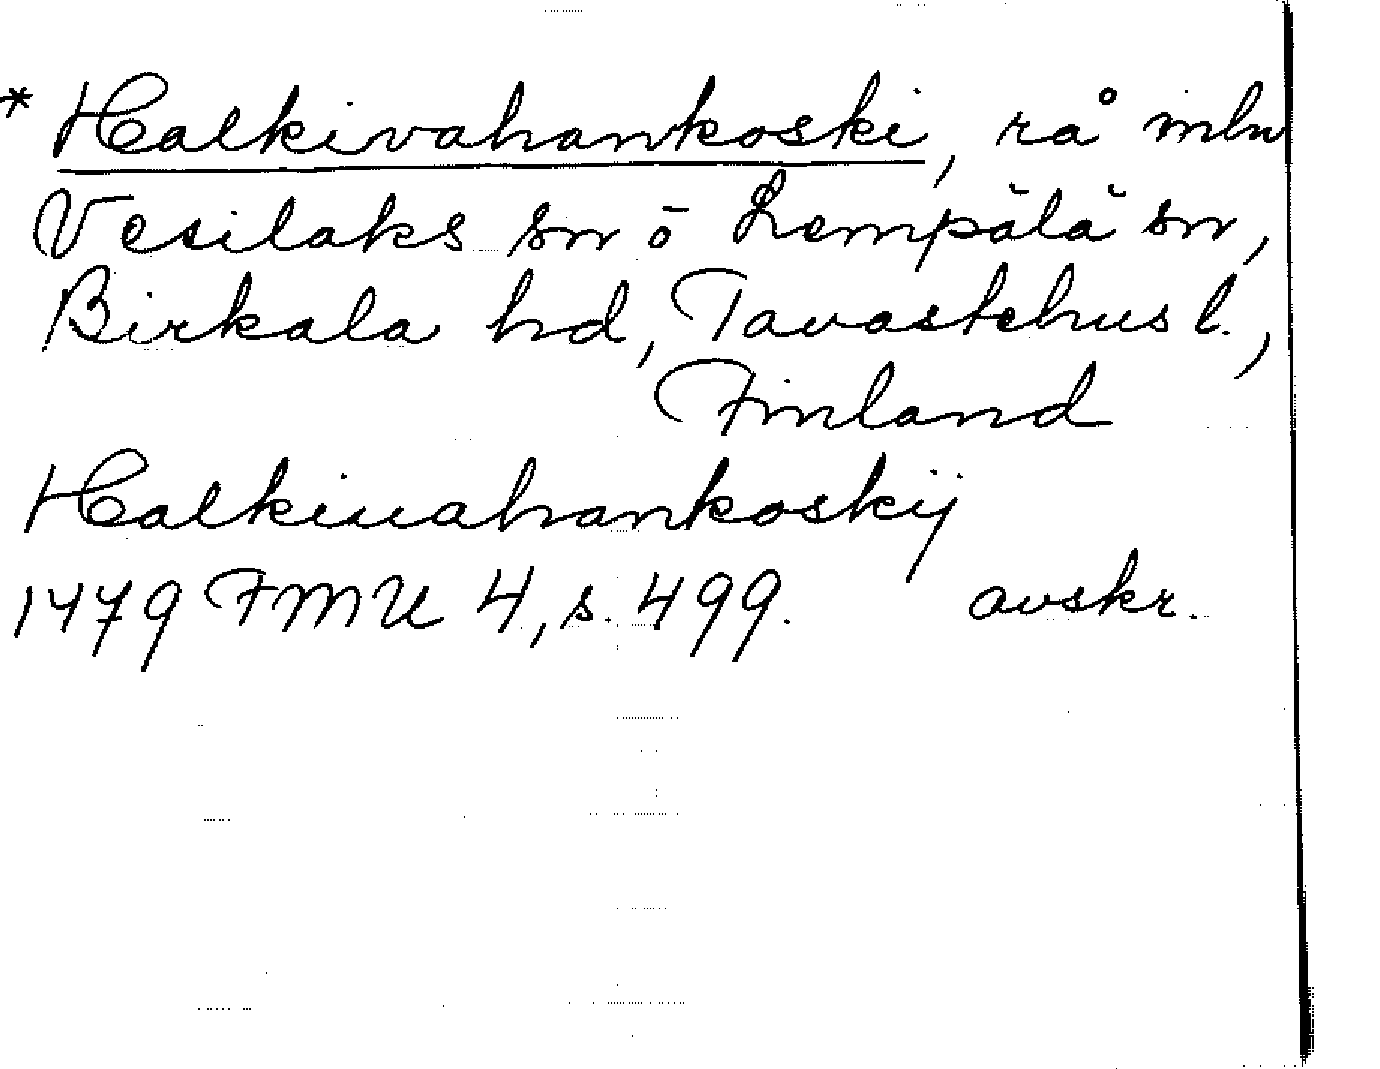 * Halkivahankoski, rå mln
Vesilaks sn ō Lempälä sn,
Birkala hd, Tavastehus l.,
Finland
Halkiuahankoskij
1479 FMU 4, s. 499. avskr.